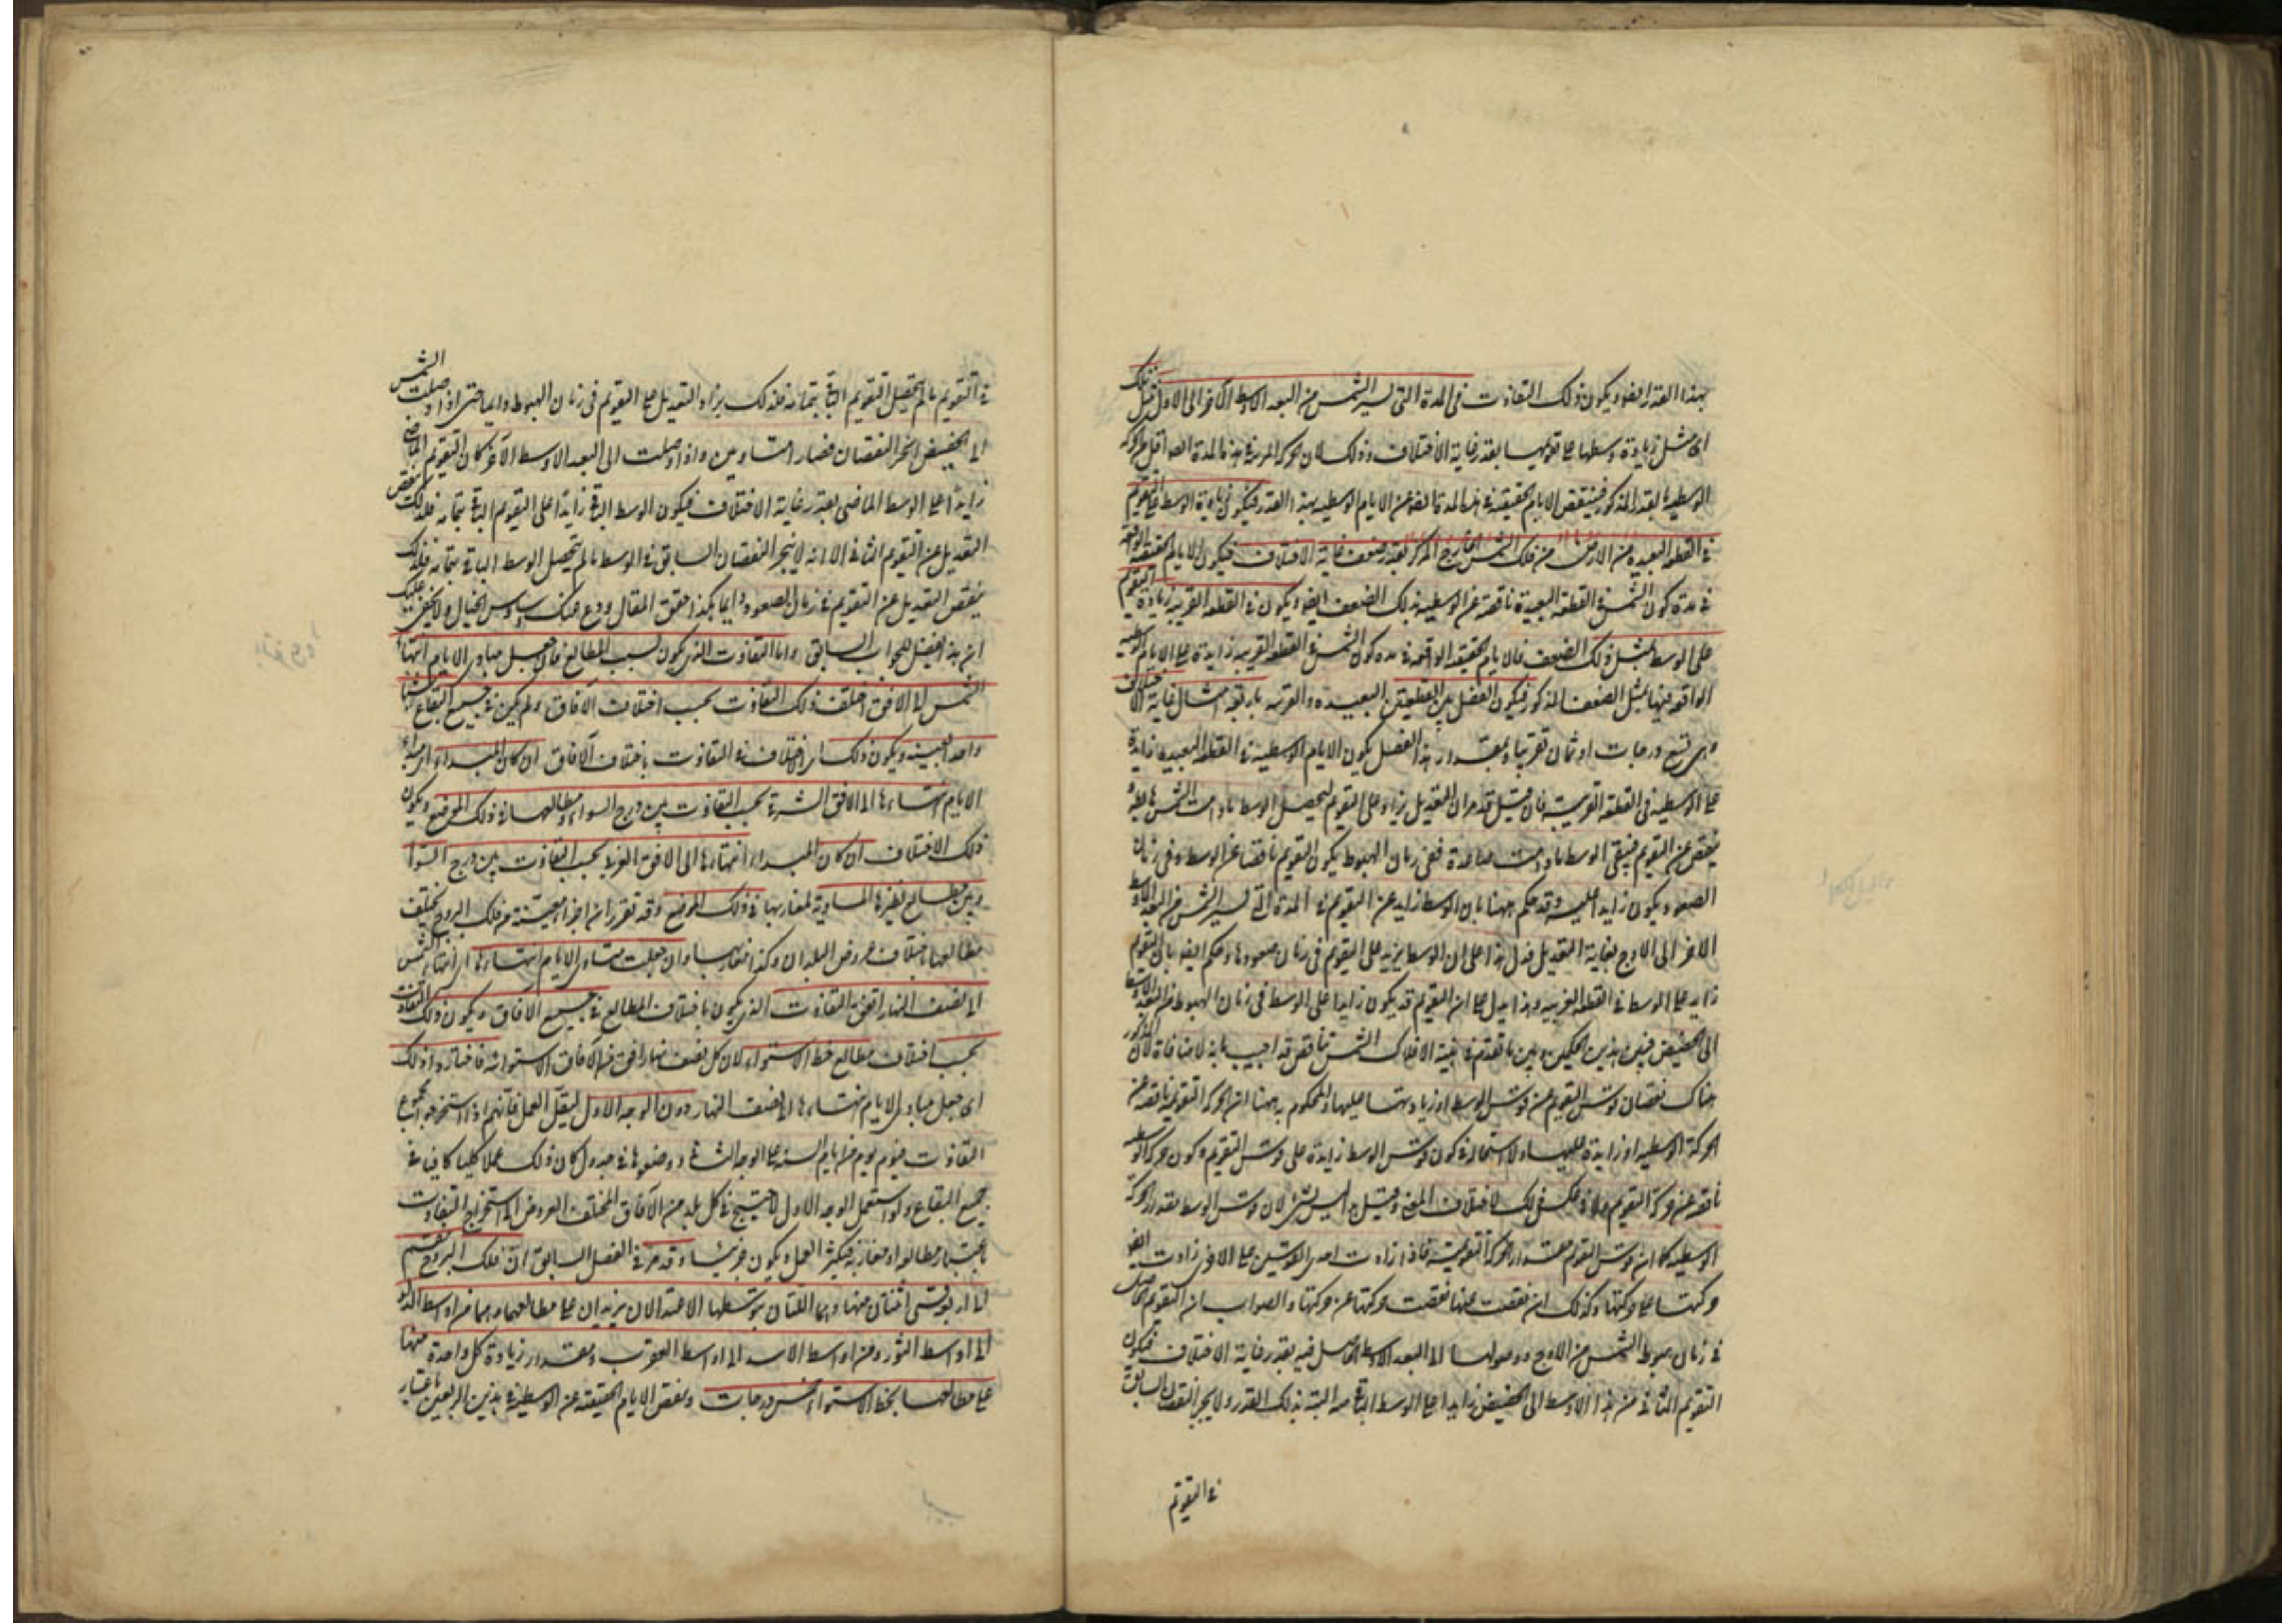 بهذا القدر ايضا ويكون ذلك التفاوت فى المدة التى تسير الشمس من البعد الاوسط الآخر الى الاول قبل ذلك
اى مثل زيادة وسطها على تقويمها بقدر غاية الاختلاف وذلك لان الحركة المرئية فى هذه المدة ايضا اقل من الحركة
الوسطية بالقدر المذكور فينتقص الايام الحقيقية فى هذه المدة ايضا عن الايام الوسطية بهذا القدر فيكون زيادة الوسط على التقويم
فى القطعة البعيدة من الارض من فلك الشمس الخارج المركز بقدر ضعف غاية الاختلاف فيكون الايام الحقيقية الواقعة
فى مدة كون الشمس فى القطعة البعيدة ناقصة عن الوسطية بذلك الضعف ايضا ويكون فى القطعة القريبة زيادة التقويم
على الوسط بمثل ذلك الضعف فالايام الحقيقية الواقعة فى مدة كون الشمس فى القطعة القريبة زايدة على الايام الوسطية
الواقعة فيها بمثل الضعف المذكور فيكون الفضل بين القطعتين البعيدة والقريبة باربعة امثال غاية الاختلاف
وهى تسع درجات او ثمان تقريبا وبمقدار هذا الفضل يكون الايام الوسطية فى القطعة البعيدة زايدة
على الوسطية فى القطعة القريبة فان قيل قد مر ان التعديل يزاد على التقويم ليحصل الوسط ما دامت الشمس هابطة
وينقص عن التقويم فيبقى الوسط ما دامت صاعدة ففى زمان الهبوط يكون التقويم ناقصا عن الوسط وفى زمان
الصعود يكون زايدا عليه وقد حكم ههنا بان الوسط زايد عن التقويم فى المدة التى تسير الشمس من البعد الاوسط
الآخر الى الاوج بغاية التعديل فدل هذا على ان الوسط يزيد على التقويم فى زمان صعودها وحكم ايضا بان التقويم
زايد على الوسط فى القطعة القريبة وهذا يدل على ان التقويم قد يكون زايدا على الوسط فى زمان الهبوط من البعد الاوسط
الى الحضيض فبين هذين الحكمين وبين ما تقدم فى هيئة الافلاك الشمس تناقض قد اجيب بانه لا منافاة لان المذكور
هناك نقصان قوس التقويم عن قوس الوسط او زيادتها عليها والمحكوم به ههنا ان الحركة التقويمية ناقصة عن
الحركة الوسطية او زايدة عليها ولا استحالة فى كون قوس الوسط زايدة على قوس التقويم وكون حركة الوسط
ناقصة عن حركة التقويم ولا فى عكس ذلك لاختلاف المعنى وقيل ليس بشئ لان قوس الوسط مقدار الحركة
الوسطية كما ان قوس التقويم مقدار الحركة التقويمية فاذا زادت احدى القوسين على الاخرى زادت ايضا
حركتها على حركتها وكذلك ان نقصت عنها نقصت حركتها عن حركتها والصواب ان التقويم الحاصل
فى زمان هبوط الشمس من الاوج ووصولها الى البعد الاوسط الحاصل فيه بقدر غاية الاختلاف فيكون
التقويم الثانى من هذا الاوسط الى الحضيض زايدا على الوسط الباقى منه البتة بذلك القدر ولا ينجبر النقصان السابق
فى التقويم
فى التقويم ما لم يحصل التقويم الباقى بتمامه فلذلك يزاد التعديل على التقويم فى زمان الهبوط دايما حتى اذا وصلت الشمس
الى الحضيض انجبر النقصان فصار متساويين واذا وصلت الى البعد الاوسط الآخر كان التقويم الماضى
زايدا على الوسط الماضى بقدر غاية الاختلاف فيكون الوسط الباقى زايدا على التقويم الباقى بتمامه فلذلك ينقص
التعديل عن التقويم الثانى الا انه لا ينجبر النقصان السابق فى الوسط ما لم يتحصل الوسط الباقى بتمامه فلذلك
ينقص التعديل عن التقويم فى زمان الصعود دايما هكذا حقق المقال ودع عنك وساوس الخيال ولا يخفى عليك
ان هذا تفصيل للجواب السابق واما التفاوت الذى يكون بسبب المطالع فان جعل مبادى الايام انتهاء
الشمس الى الافق اختلف ذلك التفاوت بحسب اختلاف الآفاق ولم يكن فى جميع البقاع شيئا
واحدا بعينه ويكون ذلك اى الاختلاف فى التفاوت باختلاف الآفاق ان كان المبداء اى مبداء
الايام انتهاءها الى الافق الشرقى بحسب التفاوت بين درج السواء ومطالعها فى ذلك الموضع ويكون
ذلك الاختلاف ان كان المبداء انتهاءها الى الافق الغربى بحسب التفاوت بين درج السواء
وبين مطالع نظيرها المساوية لمغاربها فى ذلك الموضع وقد تقرر ان اجزاء معينة من فلك البروج تختلف
مطالعها باختلاف عروض البلدان وكذا مغاربها وان جعلت مبادى الايام انتهاءها اى انتهاء الشمس
الى نصف النهار اتفق التفاوت الذى يكون باختلاف المطالع فى جميع الآفاق ويكون ذلك التفاوت
بحسب اختلاف مطالع خط الاستواء لان كل نصف نهار افق من آفاق الاستوائية فاختاروا ذلك
اى جعل مبادى الايام انتهاءها الى نصف النهار دون الوجه الاول ليقل العمل فانهم اذا استخرجوا مجموع
التفاوت ليوم يوم من ايام السنة على الوجه الثانى ووضعوها فى جدول كان ذلك عملا كليا كافيا فى
جميع البقاع ولو استعمل الوجه الاول لاحتيج فى كل بلد من الآفاق المختلفة العروض الى استخراج التفاوت
باعتبار مطالعه او مغاربه فيكثر العمل ويكون جزئيا وقد مر فى الفصل السابق ان فلك البروج ينقسم
الى اربع قسى اثنتان منها وهما اللتان يتوسطهما الاعتدالان يزيدان على مطالعهما وهما من اواسط الدلو
الى اواسط الثور ومن اواسط الاسد الى اواسط العقرب ومقدار زيادة كل واحدة منهما
على مطالعها بخط الاستواء خمس درجات وينقص الايام الحقيقية عن الوسطية فى هذين الربعين باعتبار